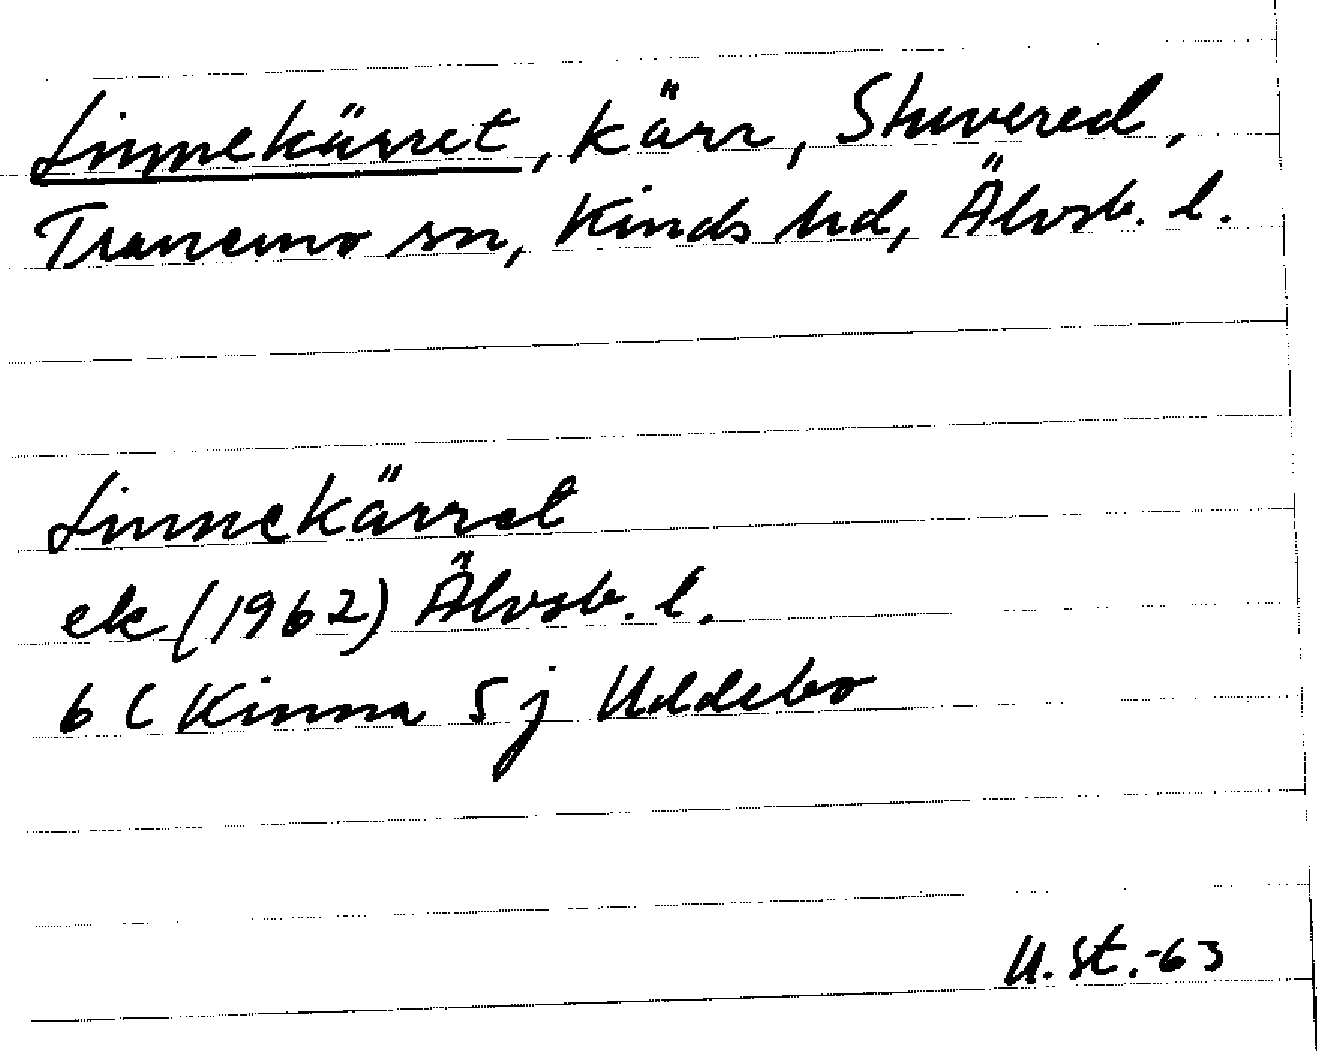 Linnekärret, kärr, Stuvered,
Tranemo sn, Kinds hd, Älvsb. l.
Linnekärret
ek (1962) Älvsb. l.
6 C Kinna 5 j Uddebo
U.St.-63